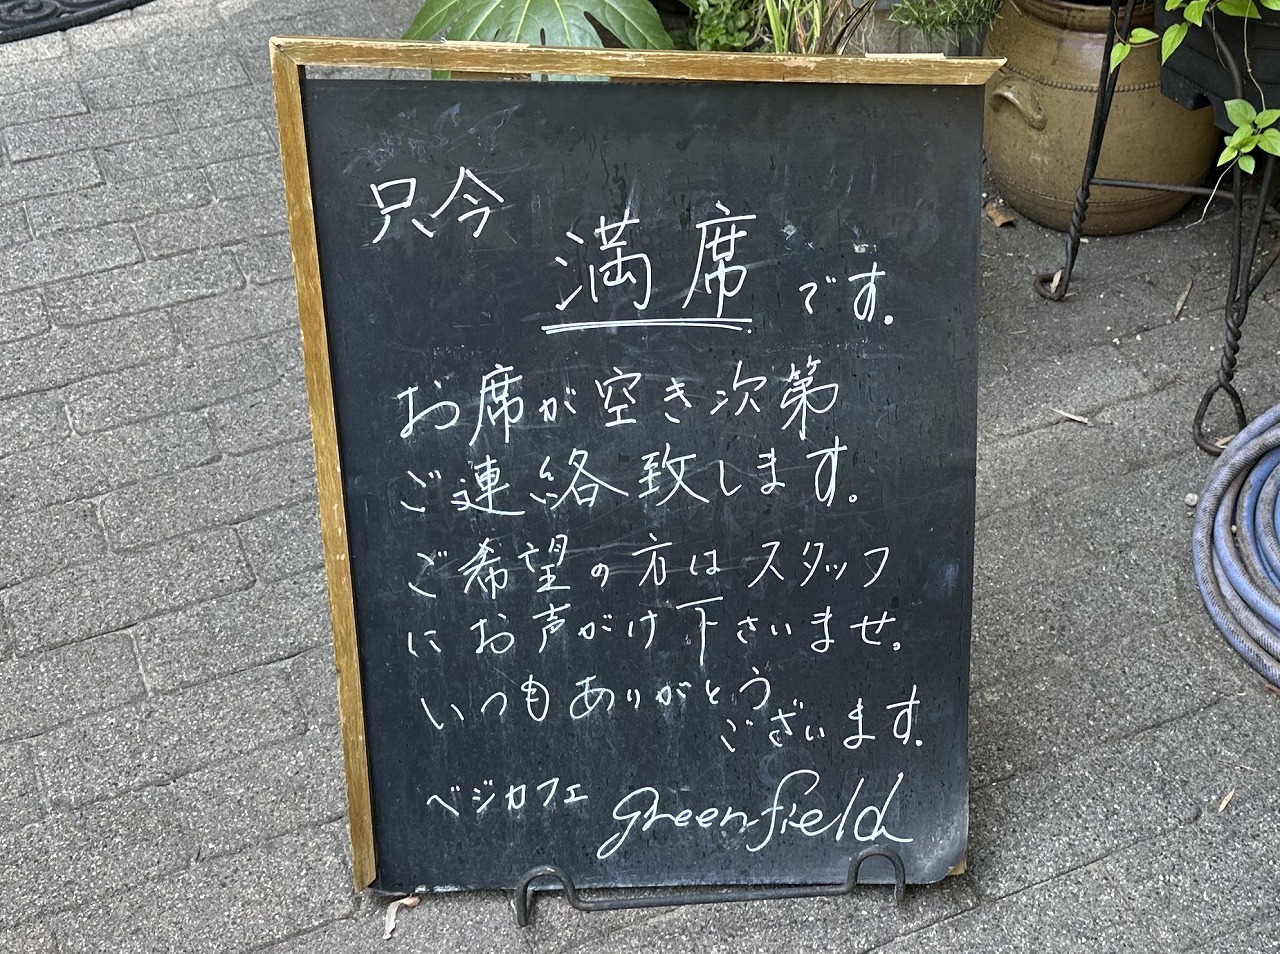 只今
満席です。
お席が空き次第
ご連絡致します。
ご希望の方はスタッフ
にお声がけ下さいませ。
いつもありがとう
ございます。
ベジカフェ greenfield